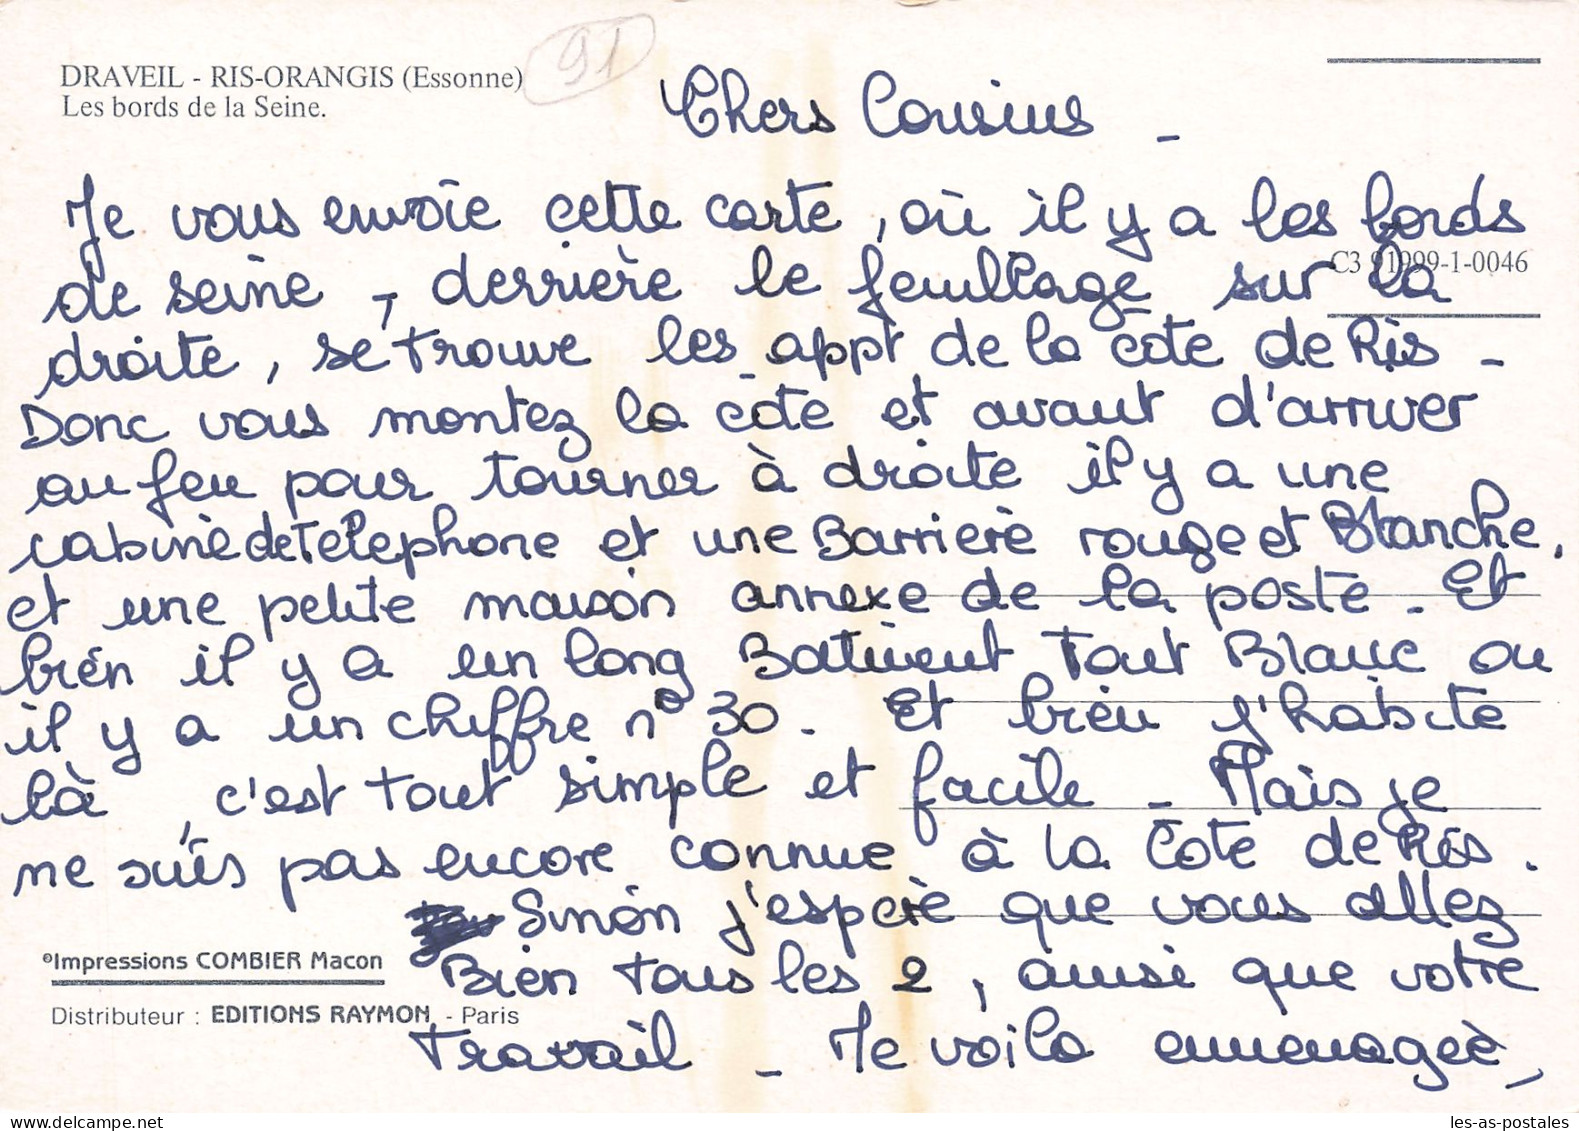 DRAVEIL - RIS-ORANGIS (Essonne)
Les bords de la Seine.
91
Chers Cousins -
Je vous envoie cette carte, où il y a les bords
C3 91999-1-0046
de seine, derrière le feuillage sur la
droite, se trouve les appt de la côte de Ris -
Donc vous montez la côte et avant d'arriver
au feu pour tourner à droite il y a une
cabine de Téléphone et une Barrière rouge et Blanche,
et une petite maison annexe de la poste - Et
bien il y a un long Batiment Tout Blanc ou
il y a un chiffre n° 30. Et bien j'habite
là, c'est tout simple et facile - Mais je
ne suis pas encore connue à la Côte de Ris.
Sinon j'espère que vous allez
°Impressions COMBIER Macon
Bien tous les 2, ainsi que votre
Distributeur : EDITIONS RAYMON - Paris
Travail - Je voila emmenagée,
les-as-postales